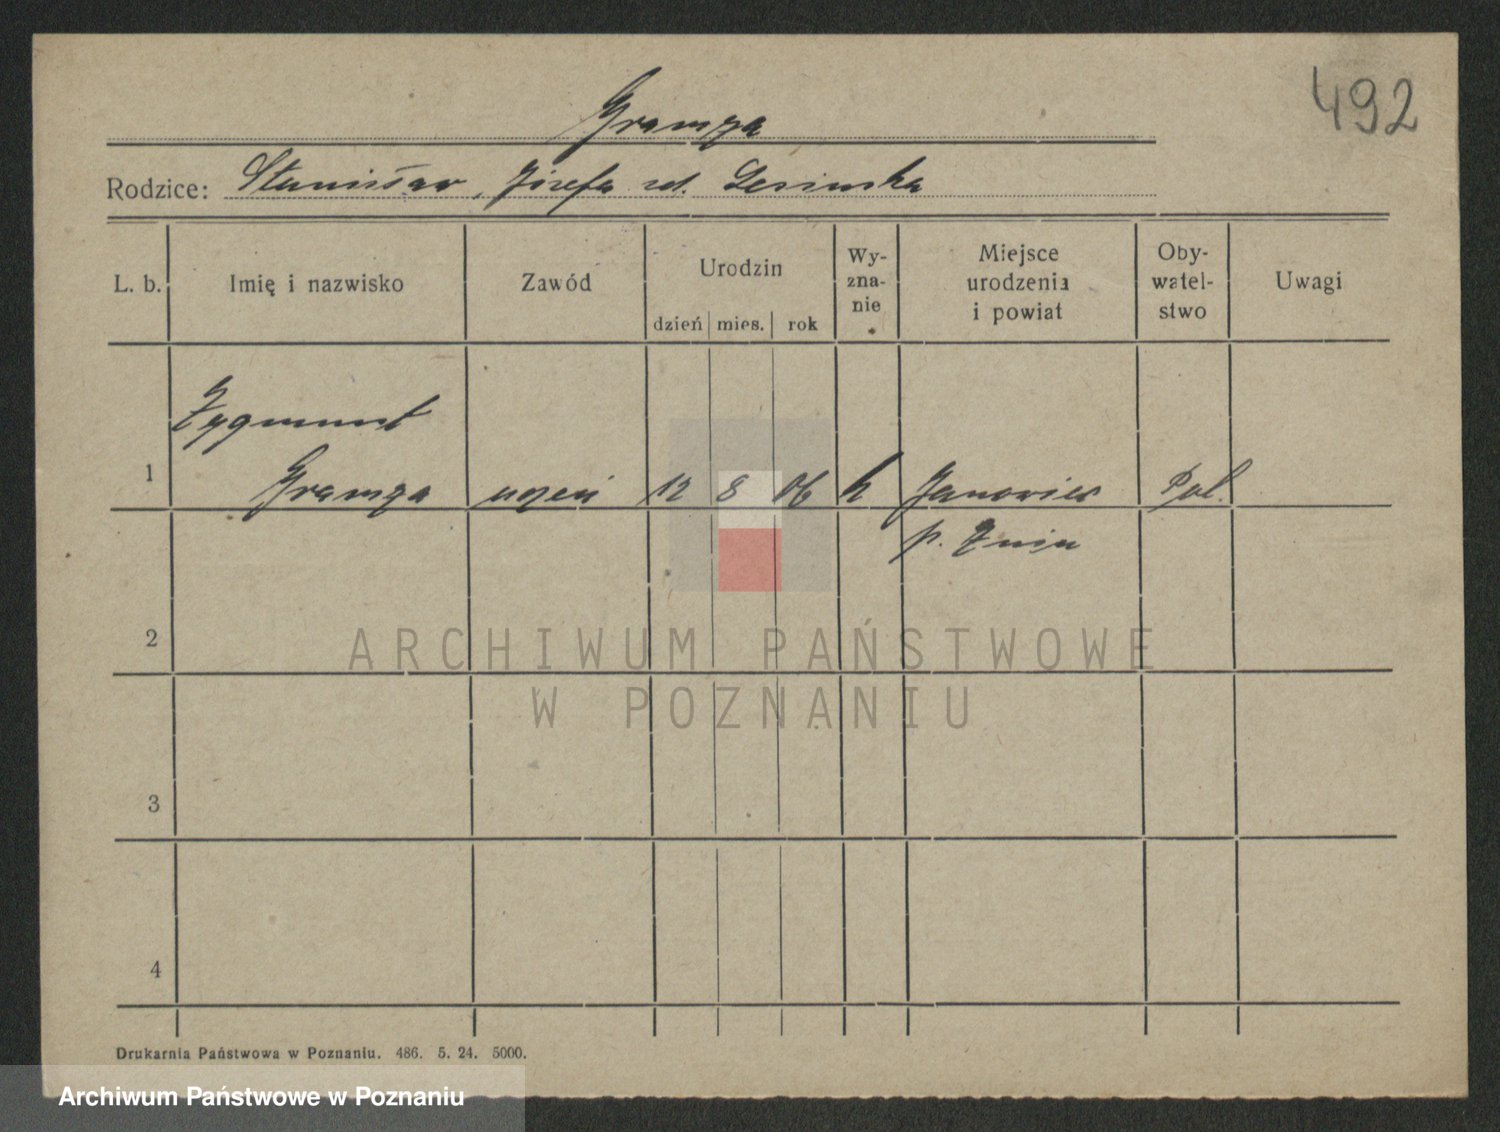 492
Gramza
Rodzice: Stanisław, Józefa zd. Lesinska
L. b. Imię i nazwisko Zawód Urodzin dzień mies. rok Wy-zna-nie Miejsce urodzenia i powiat Oby-watel-stwo Uwagi
Zygmunt
1 Gramza uczeń 12 8 06 k Janowiec Pol.
p. Żnin
2
ARCHIWUM PAŃSTWOWE
W POZNANIU
3
4
Drukarnia Państwowa w Poznaniu. 486. 5. 24. 5000.
Archiwum Państwowe w Poznaniu